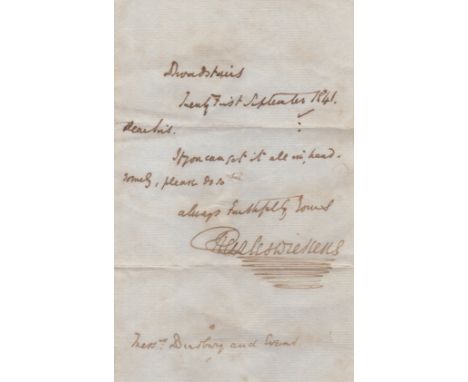 Broadstairs
Twenty First September 1841.
Dear Sirs.
If you can get it all in, hand-
somely, please do so
always Faithfully Yours
Charles Dickens
Mess.rs Bradbury and Evans